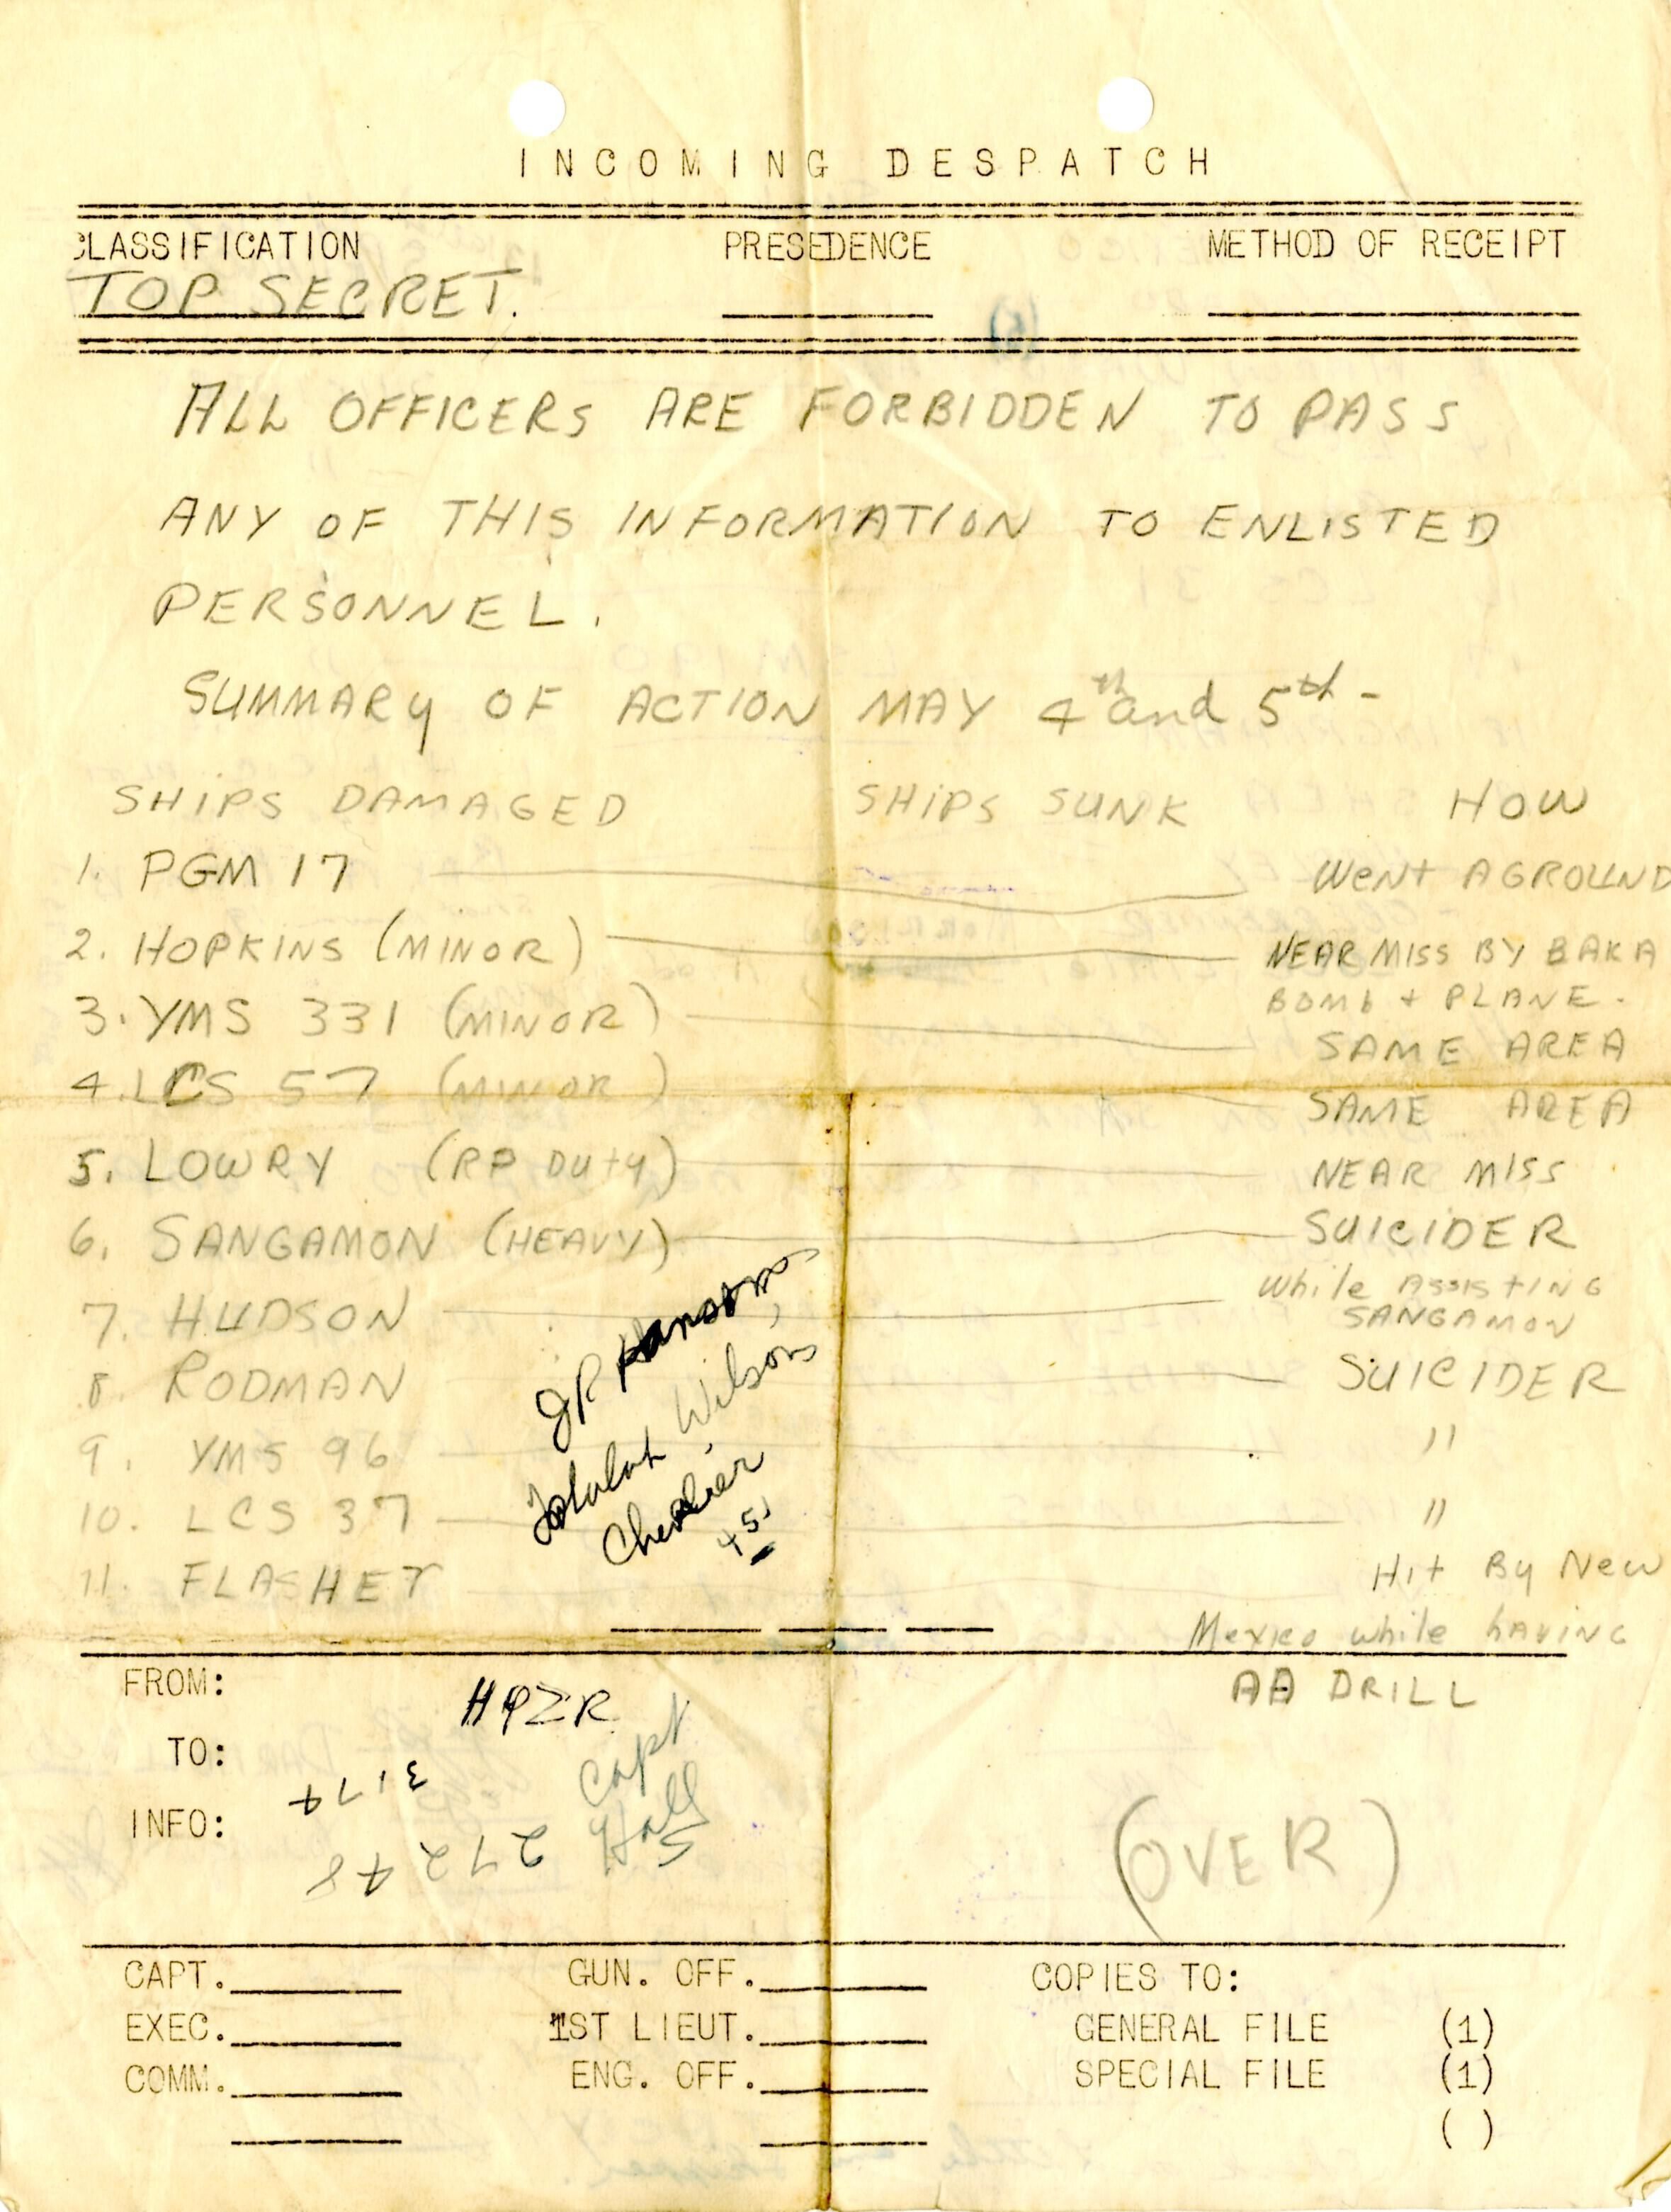 INCOMING DESPATCH
CLASSIFICATION PRESEDENCE METHOD OF RECEIPT
TOP SECRET.
ALL OFFICERS ARE FORBIDDEN TO PASS
ANY OF THIS INFORMATION TO ENLISTED
PERSONNEL.
SUMMARY OF ACTION MAY 4th and 5th -
SHIPS DAMAGED SHIPS SUNK HOW
1. PGM 17 WENT AGROUND
2. HOPKINS (MINOR) NEAR MISS BY BAKA
BOMB + PLANE.
3. YMS 331 (MINOR) SAME AREA
4. LCS 57 (MINOR) SAME AREA
5. LOWRY (RP DUTY) NEAR MISS
6. SANGAMON (HEAVY) SUICIDER
7. HUDSON While ASSISTING
SANGAMON
8. RODMAN SUICIDER
9. YMS 96 "
10. LCS 37 "
11. FLASHET Hit By New
Mexico while having
AA DRILL
JR
Wilson
Chevalier
45
FROM: HPZR
TO: 3174
INFO: 27248
Capt
Hall
(OVER)
CAPT. GUN. OFF. COPIES TO:
EXEC. 1ST LIEUT. GENERAL FILE (1)
COMM. ENG. OFF. SPECIAL FILE (1)
( )